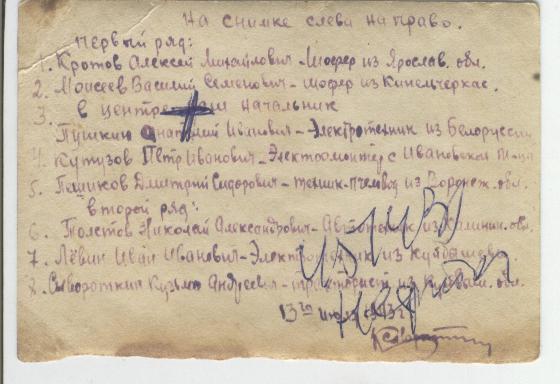 На снимке слева на право.
первый ряд:
1. Кротов Алексей Михайлович - шофер из Ярослав. обл.
2. Моисеев Василий Семенович - шофер из Кинельчеркас.
3. в центре наш начальник
Пушкин Анатолий Иванович - Электротехник из Белоруссии
4. Кутузов Пётр Иванович - Электромонтер с Ивановская
5. Пешиков Дмитрий Сидорович - техник-пчеловод из Воронеж. обл.
второй ряд:
6. Толстов Николай Александрович - из Калинин. обл.
7. Лёвин Иван Иванович - из Куйбышева
8. Сывороткин Кузьма Андреевич - тракторист из обл.
13го